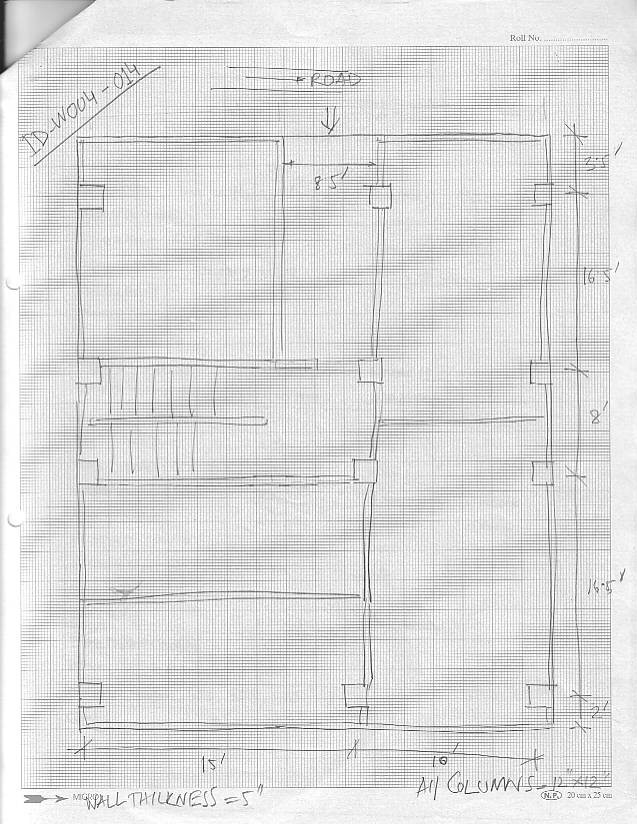 Roll No. ........................
ID-W004-014
ROAD
8.5'
3.5'
16.5'
8'
16.5'
2'
15'
10'
WALL THICKNESS = 5"
All COLUMNS - 12"x12"
N.P. 20 cm x 25 cm